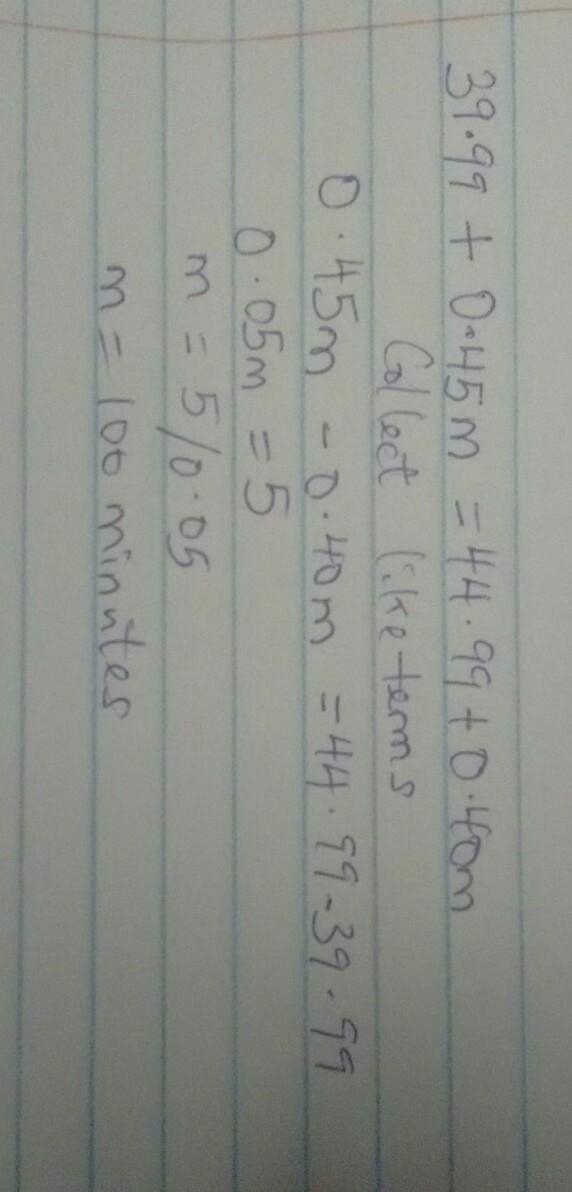 39.99 + 0.45m = 44.99 + 0.40m
Collect like terms
0.45m - 0.40m = 44.99 - 39.99
0.05m = 5
m = 5/0.05
m = 100 minutes